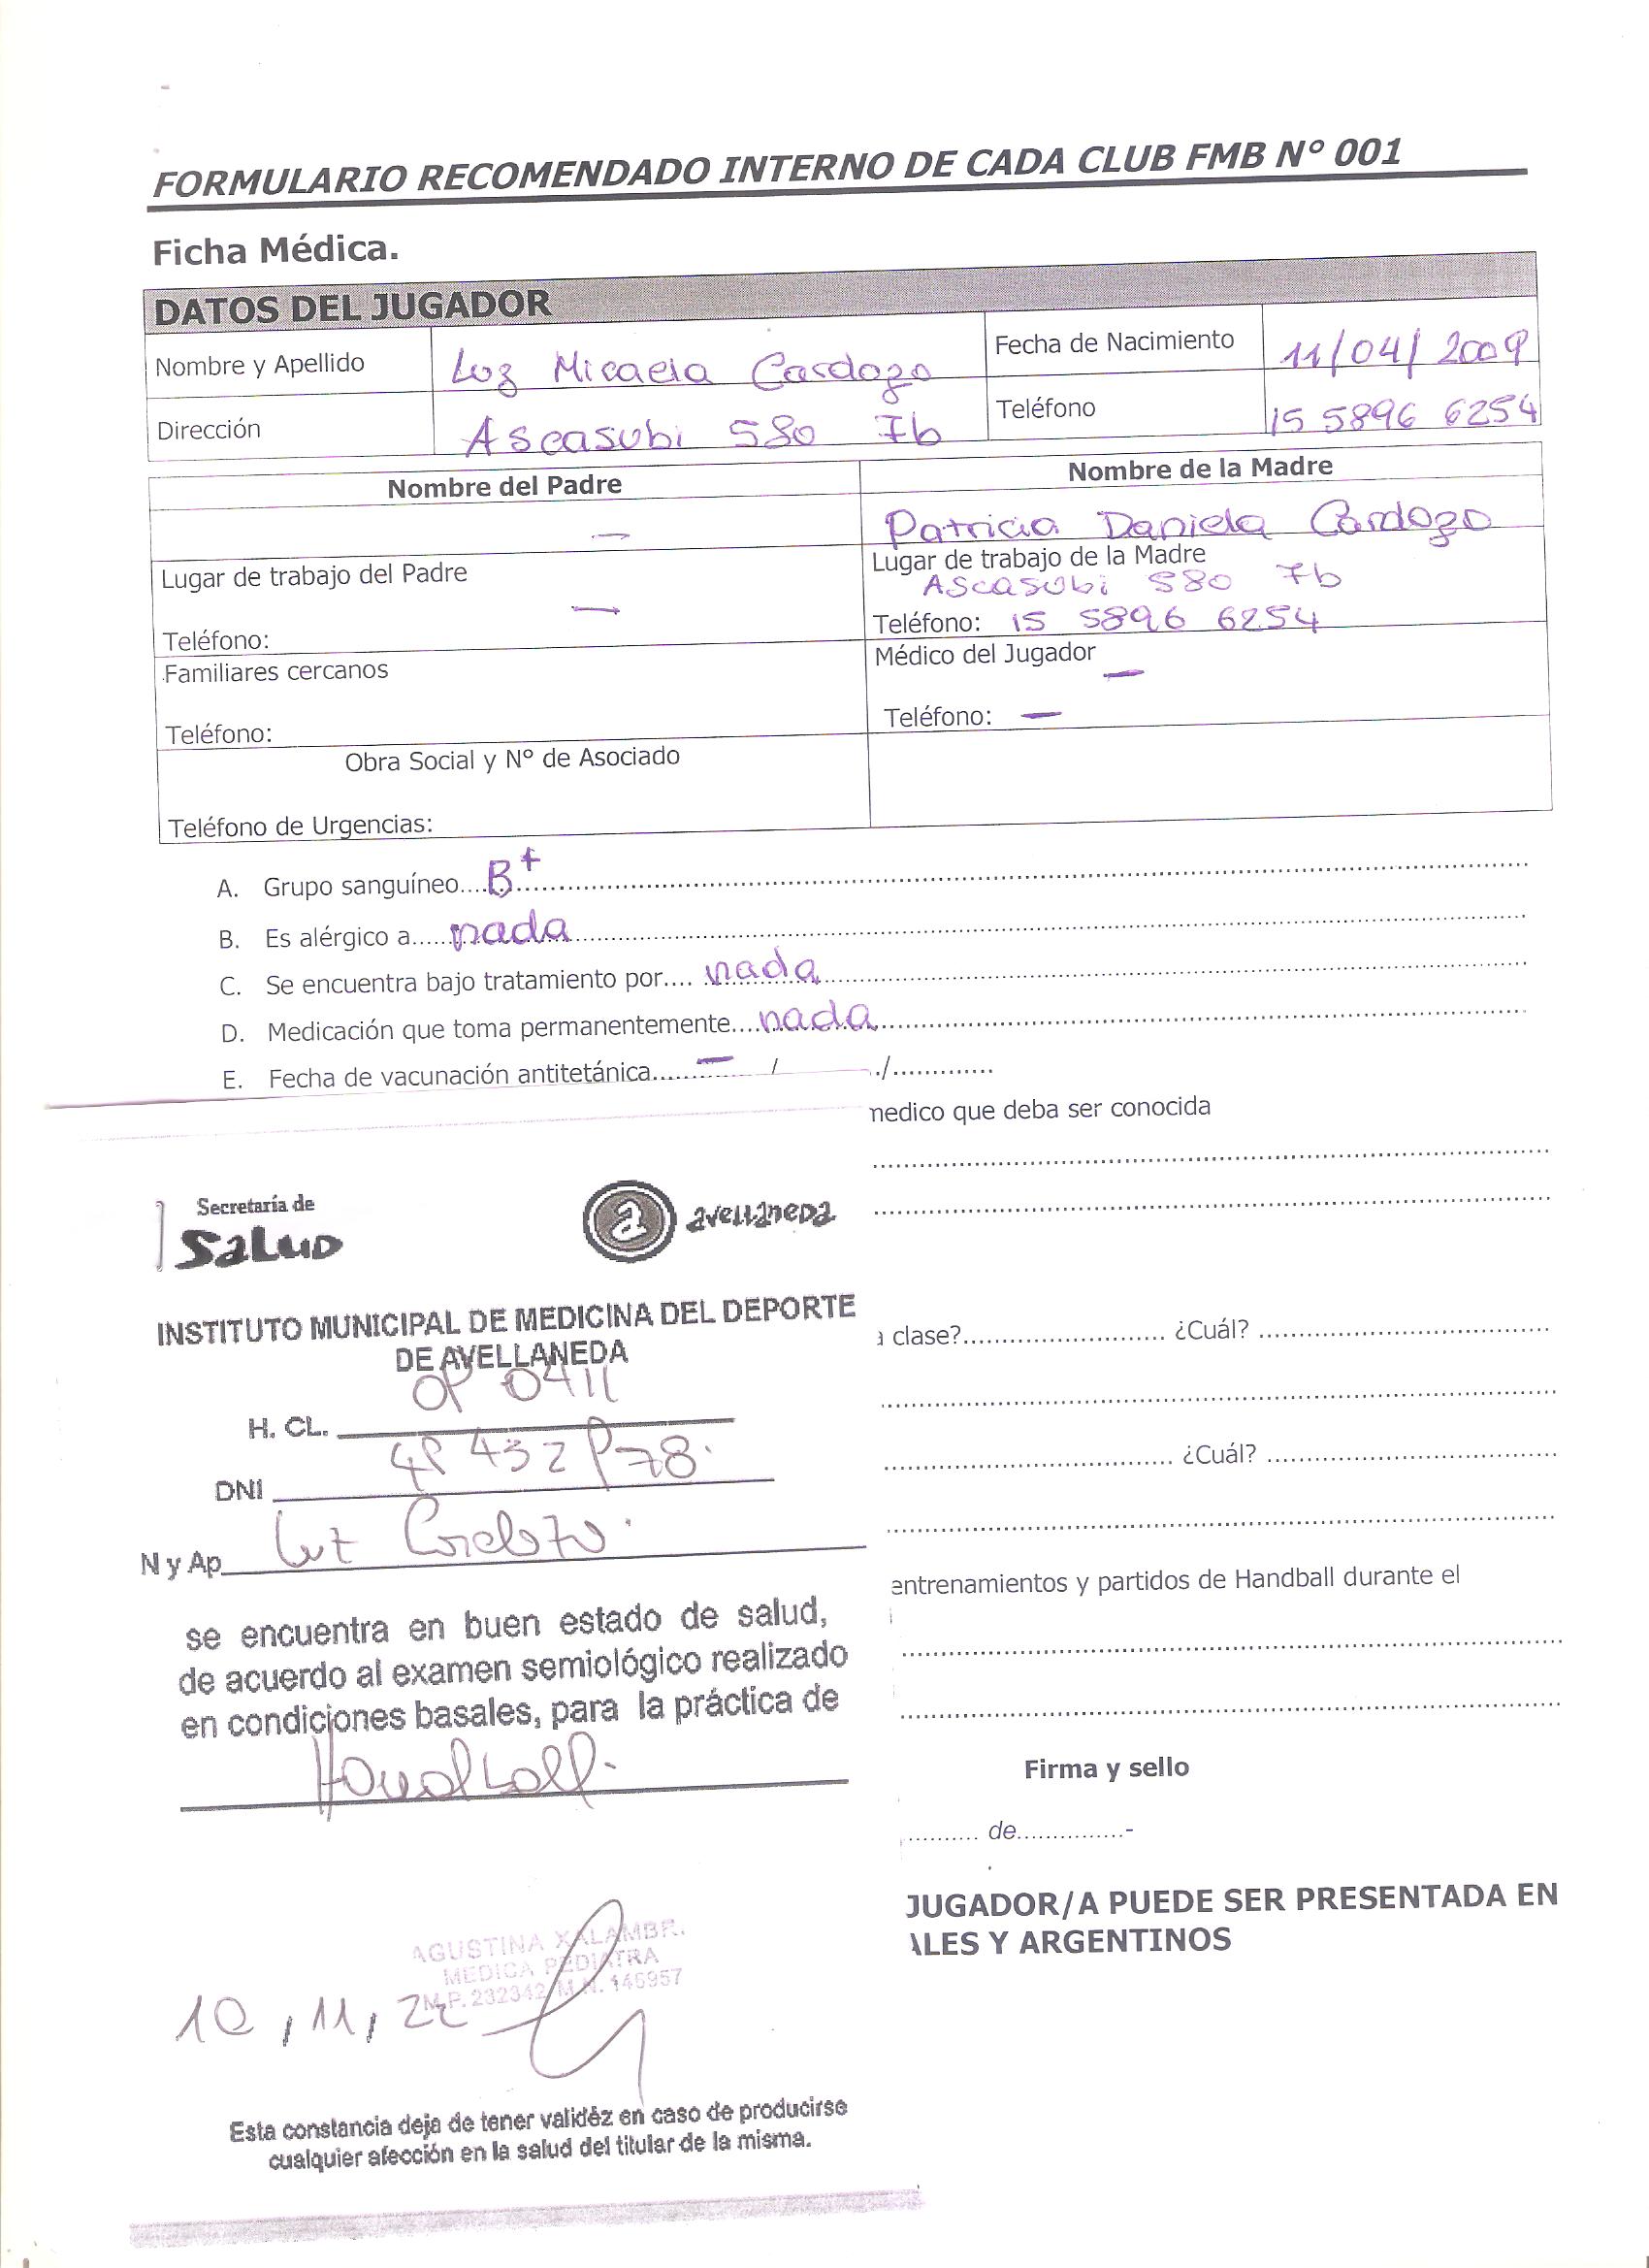 FORMULARIO RECOMENDADO INTERNO DE CADA CLUB FMB N° 001
Ficha Médica.
DATOS DEL JUGADOR
Nombre y Apellido Luz Micaela Cardozo Fecha de Nacimiento 11/04/2009
Dirección Ascasubi 580 7b Teléfono 15 5896 6254
Nombre del Padre Nombre de la Madre
— Patricia Daniela Cardozo
Lugar de trabajo del Padre Lugar de trabajo de la Madre
— Ascasubi 580 7b
Teléfono: Teléfono: 15 5896 6254
Familiares cercanos Médico del Jugador —
Teléfono: Teléfono: —
Obra Social y N° de Asociado
Teléfono de Urgencias:
A. Grupo sanguíneo....B+..........
B. Es alérgico a.....nada..........
C. Se encuentra bajo tratamiento por.... nada..........
D. Medicación que toma permanentemente....nada..........
E. Fecha de vacunación antitetánica........— / ./.............
medico que deba ser conocida
Secretaría de
Salud
a avellaneda
INSTITUTO MUNICIPAL DE MEDICINA DEL DEPORTE
DE AVELLANEDA
a clase?.......................... ¿Cuál? ..........................
H. CL. OP 0411
¿Cuál? ..........................
DNI
N y Ap Luz Cardozo
entrenamientos y partidos de Handball durante el
se encuentra en buen estado de salud,
de acuerdo al examen semiológico realizado
en condiciones basales, para la práctica de
Handball.
Firma y sello
.......... de..............-
JUGADOR/A PUEDE SER PRESENTADA EN
ALES Y ARGENTINOS
AGUSTINA XALAMBR.
MEDICA PEDIATRA
M.P. 232342 M.N. 145957
10, 11, 22
Esta constancia deja de tener validéz en caso de producirse
cualquier afección en la salud del titular de la misma.